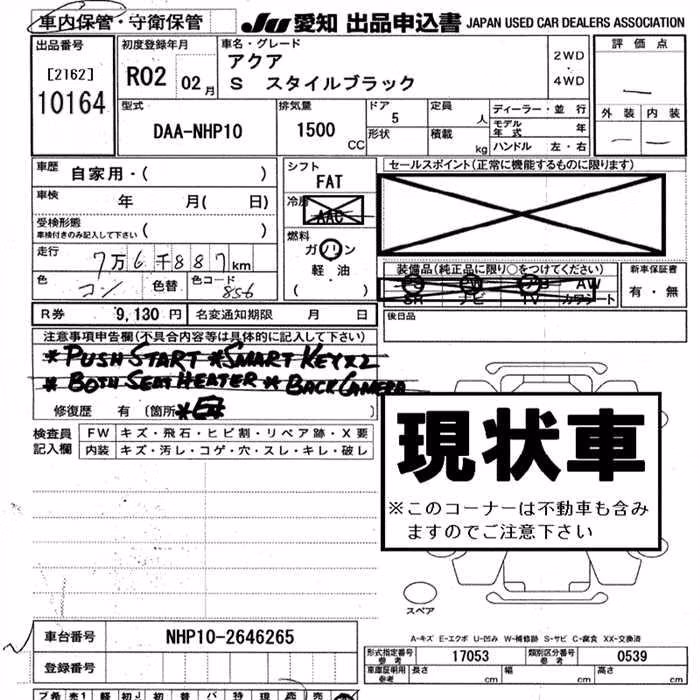 車内保管・守衛保管
JU 愛知 出品申込書 JAPAN USED CAR DEALERS ASSOCIATION
出品番号
[2162]
10164
初度登録年月
R02 02月
車名・グレード
アクア
S スタイルブラック
2WD
・
4WD
評価点
外装 内装
型式
DAA-NHP10
排気量
1500
CC
ドア
5
形状
定員
人
積載
kg
ディーラー・並行
モデル
年式 年
ハンドル 左・右
車歴
自家用・( )
車検
年 月( 日)
受検形態
車検付きのみ記入して下さい ( )
走行
7万6千887km
色
コン
色替
色コード
856
シフト
FAT
冷房
AAC
燃料
ガソリン
軽・油
( )
セールスポイント(正常に機能するものに限ります)
装備品(純正品に限り○をつけてください)
AW
SR ナビ TV カワシート
新車保証書
有・無
R券 9,130円 名変通知期限 月 日
後日品
注意事項申告欄(不具合内容等は具体的に記入して下さい)
*PUSH START *SMART KEY×2
*BOTH SEAT HEATER *BACK CAMERA
修復歴 有 [箇所 ]
検査員
記入欄
FW キズ・飛石・ヒビ割・リペア跡・X要
内装 キズ・汚レ・コゲ・穴・スレ・キレ・破レ
現状車
※このコーナーは不動車も含み
ますのでご注意下さい
スペア
A-キズ E-エクボ U-凹み W-補修跡 S-サビ C-腐食 XX-交換済
車台番号 NHP10-2646265
登録番号
形式指定番号
参考
17053
類別区分番号
参考
0539
車庫証明用
参考
長さ cm 幅 cm 高さ cm